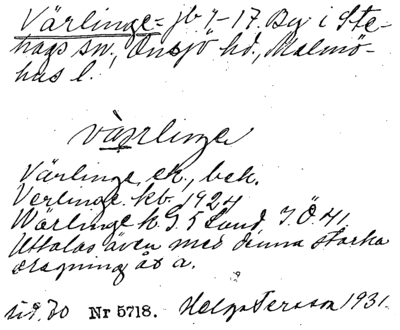 Värlinge = jb 7-17. By i Ste-
hags sn, Onsjö hd., Malmö-
hus l.
värlinge
Värlinge, ek., bek.
Verlinge kb. 1924
Wärlinge k G. 5 Lund, I. Ö. 41.
Uttalas även med denna starka
dragning åt a.
sid. 70 Nr 5718. Helge Persson 1931.